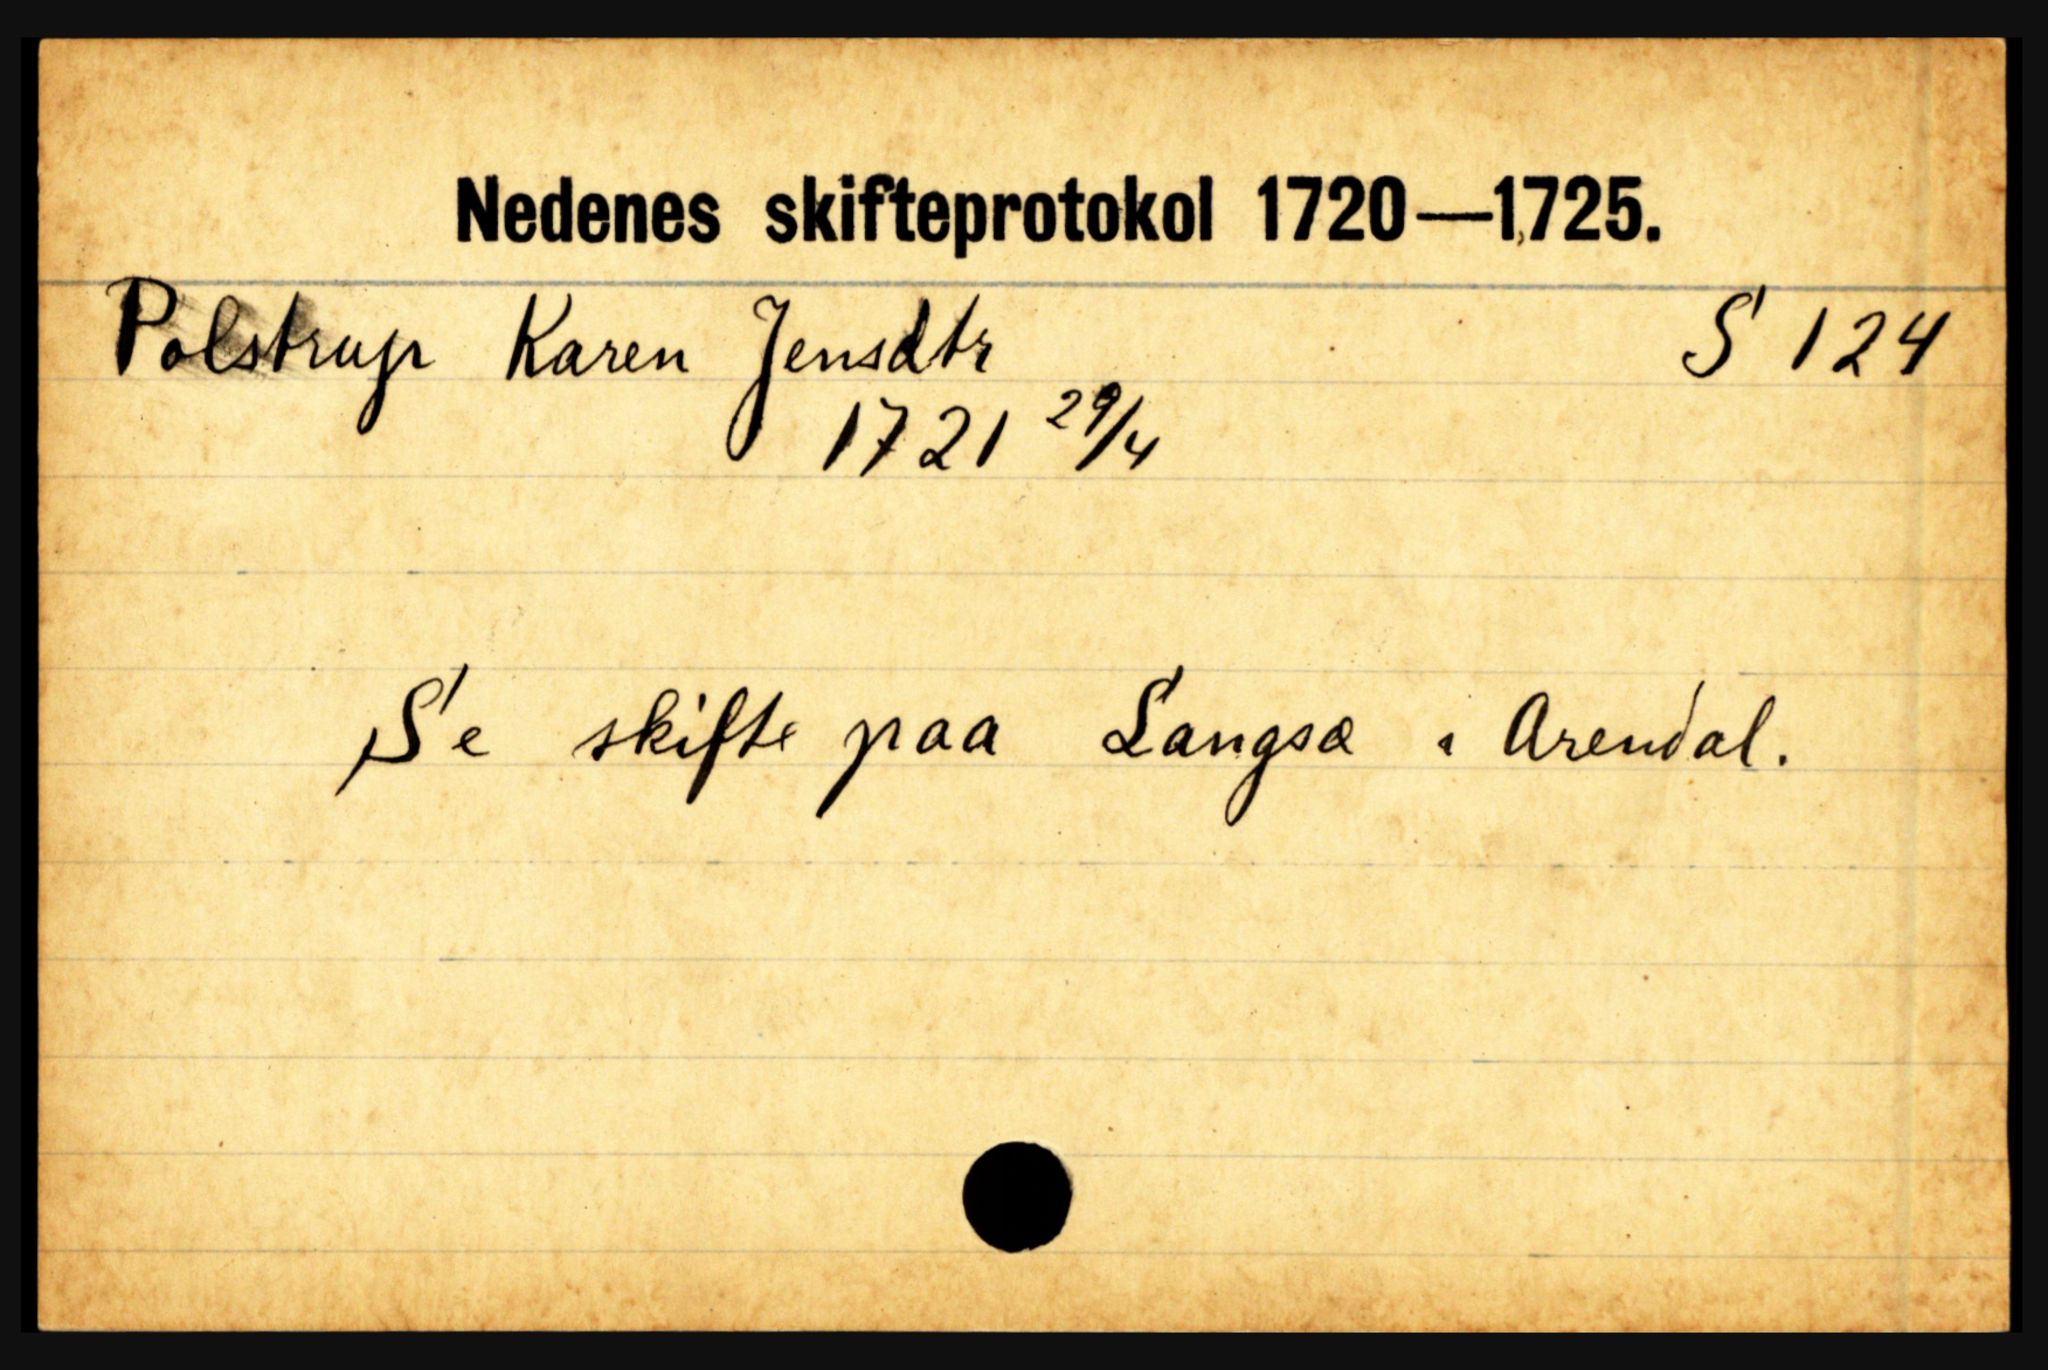 Nedenes skifteprotokol 1720—1725.
Polstrup Karen Jensdtr S 124
1721 29/4
Se skifte paa Langsæ i Arendal.